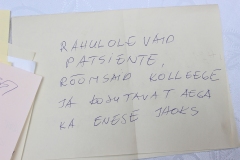 RAHULOLEVAID
PATSIENTE,
RÕÕMSAID KOLLEEGE
JA KOSUTAVAT AEGA
KA ENESE JAOKS